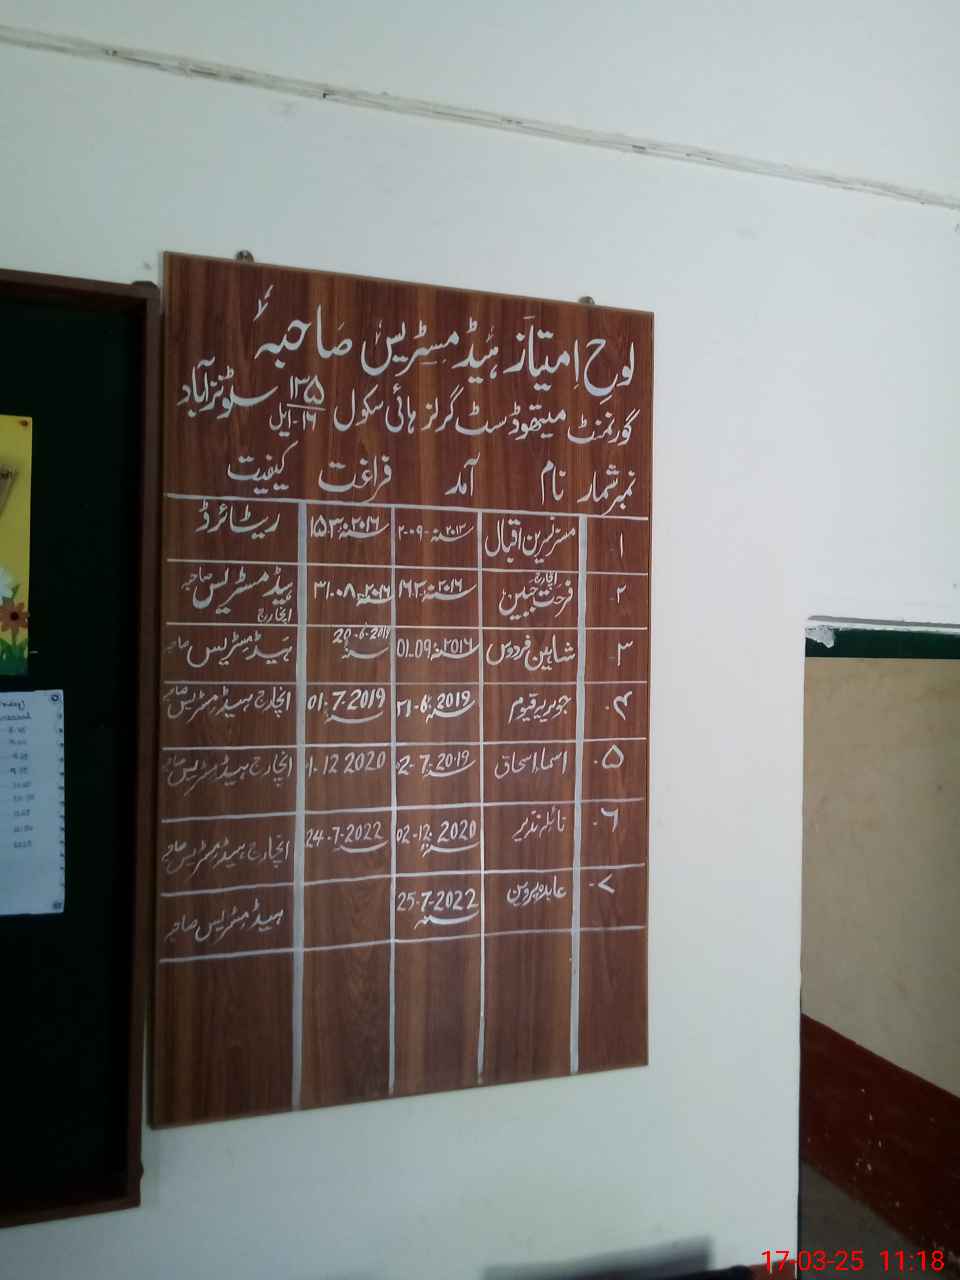 لوحِ اِمتیاز ہیڈ مسٹریس صاحبہ
گورنمنٹ میتھوڈسٹ گرلز ہائی سکول ۱۳۵/۱۶-ایل سٹونزآباد
نمبر شمار نام آمد فراغت کیفیت
۱ مسز نسرین اقبال ۲۰۱۳سنہ ۲۰۰۹ ۲۰۱۶سنہ ریٹائرڈ
۲ فرحت جبین انچارج ۲۰۱۶سنہ ۳۱-۰۸-۲۰۱۶سنہ ہیڈ مسٹریس صاحبہ انچارج
۳ شاہین فردوس 01-09-۲۰۱۶سنہ 20-6-2019سنہ ہیڈ مسٹریس صاحبہ
۴ جویریہ قیوم 21-6-2019سنہ 01-7-2019سنہ انچارج ہیڈ مسٹریس صاحبہ
۵ اسماء اسحاق 02-7-2019سنہ 1-12 2020 انچارج ہیڈ مسٹریس صاحبہ
۶ نائلہ نذیر 02-12-2020سنہ 24-7-2022سنہ انچارج ہیڈ مسٹریس صاحبہ
۷ عابدہ پروین 25-7-2022سنہ ہیڈ مسٹریس صاحبہ
17-03-25 11:18